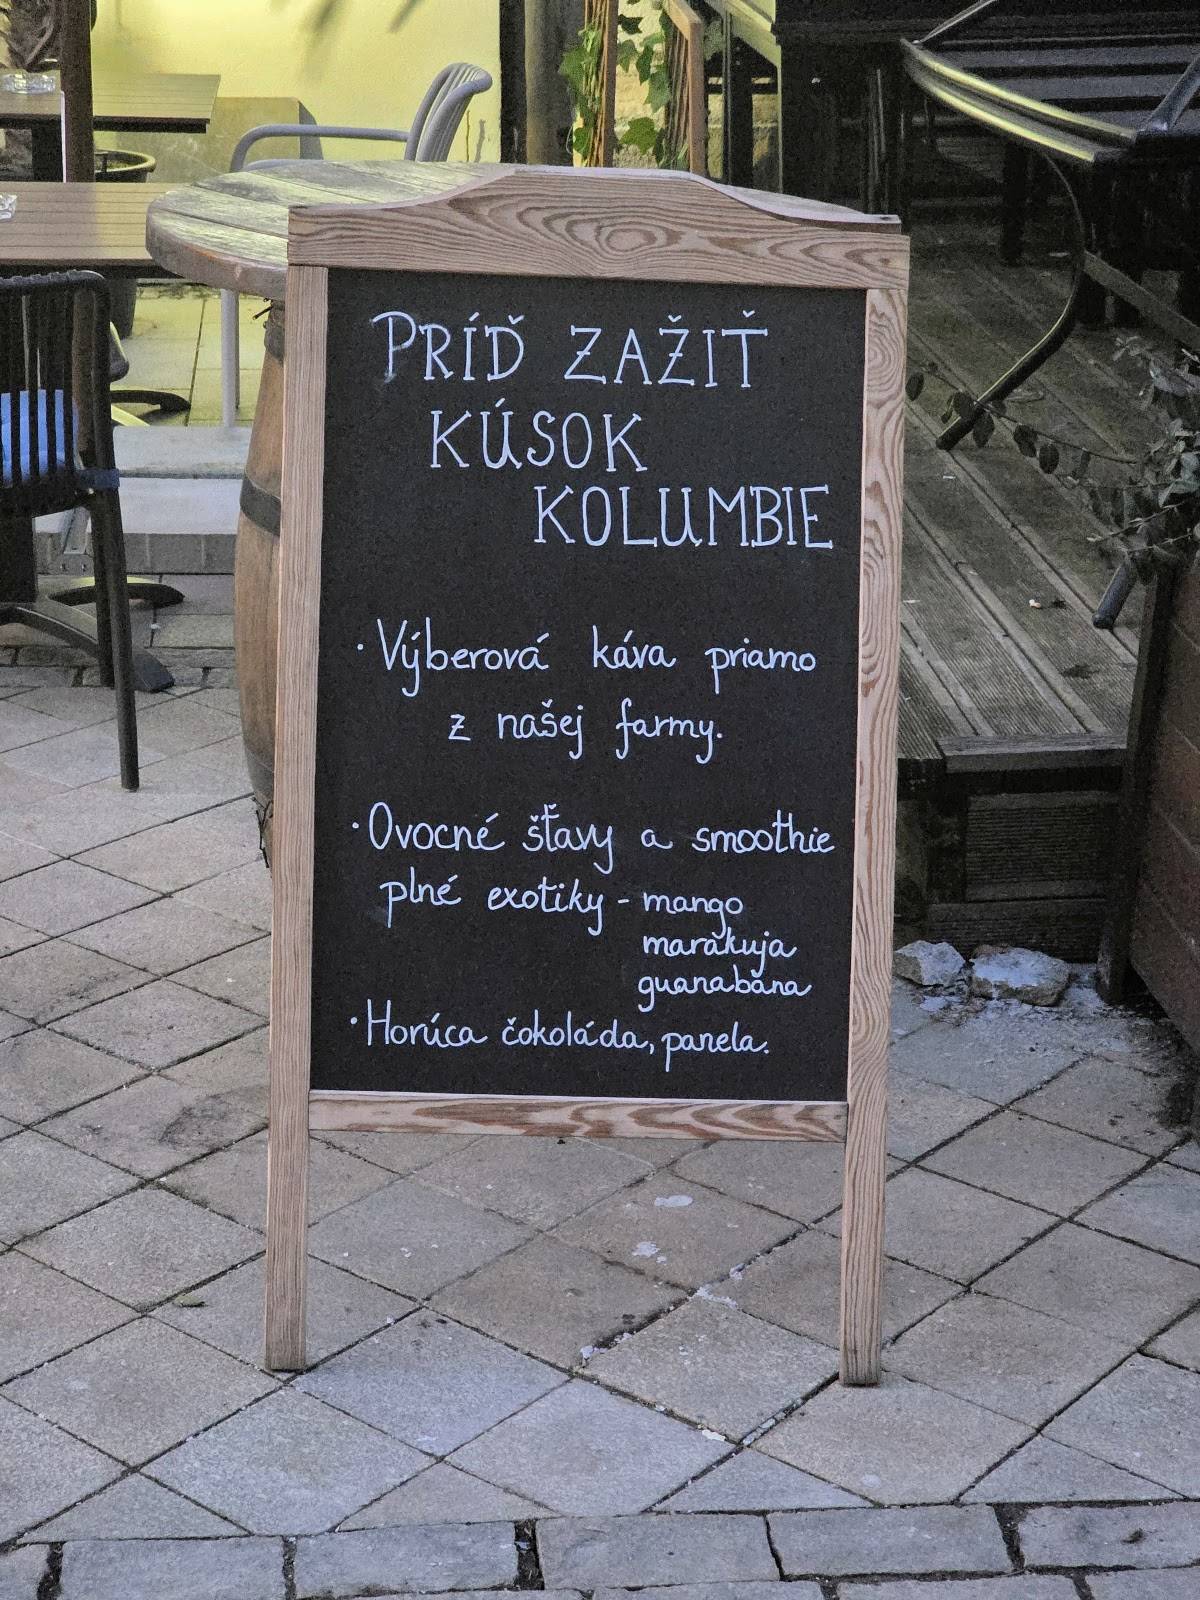 PRÍĎ ZAŽIŤ
KÚSOK
KOLUMBIE
· Výberová káva priamo
z našej farmy.
· Ovocné šťavy a smoothie
plné exotiky - mango
marakuja
guanabana
· Horúca čokoláda, panela.